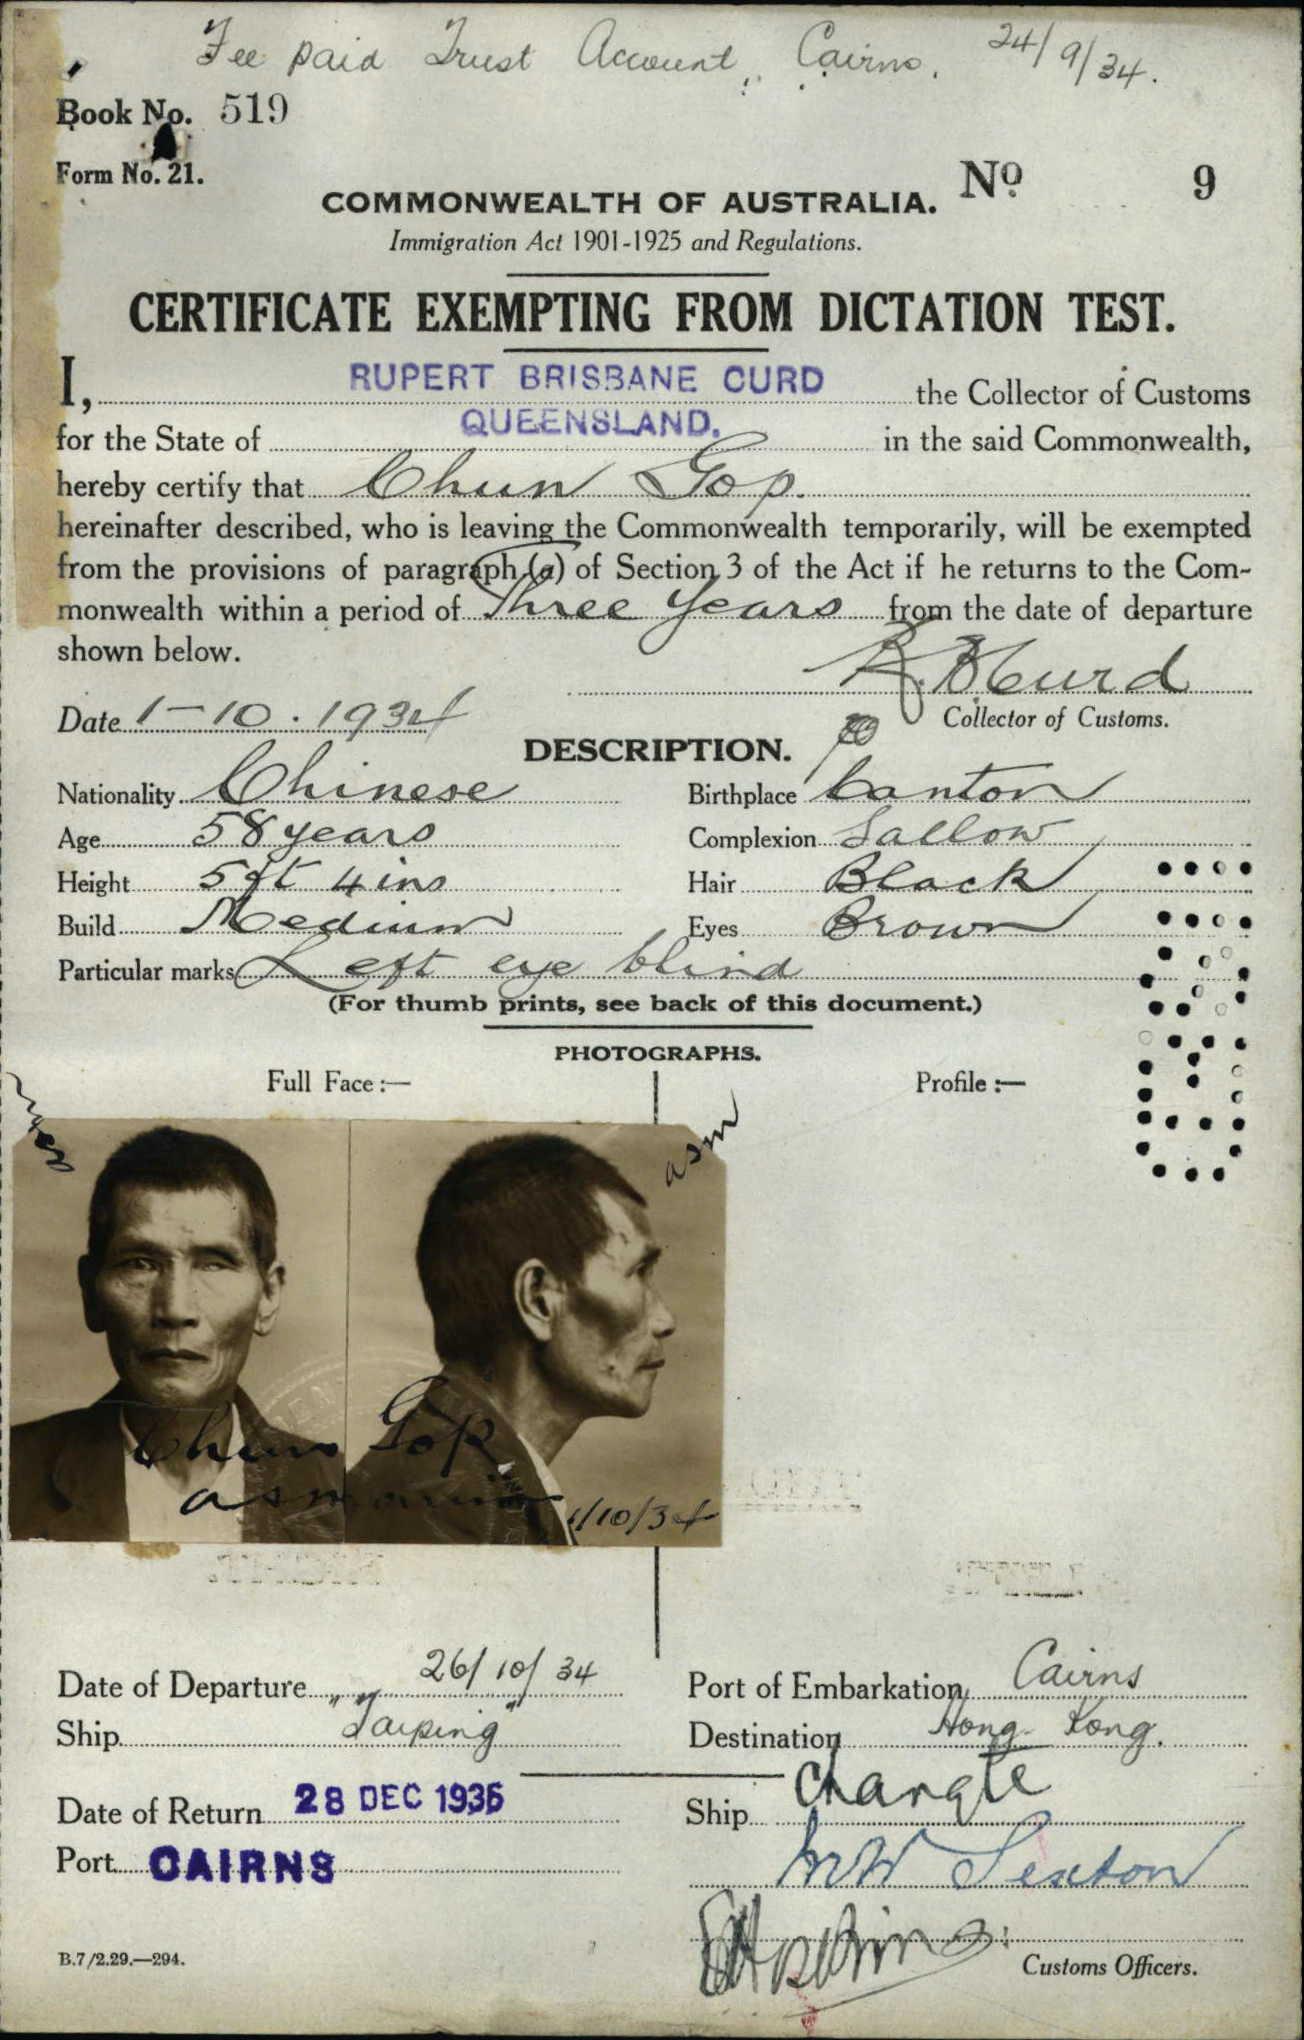 Fee paid Trust Account, Cairns. 24/9/34.
Book No. 519
Form No. 21.
No 9
COMMONWEALTH OF AUSTRALIA.
Immigration Act 1901-1925 and Regulations.
CERTIFICATE EXEMPTING FROM DICTATION TEST.
I, RUPERT BRISBANE CURD the Collector of Customs
for the State of QUEENSLAND. in the said Commonwealth,
hereby certify that Chun Gop.
hereinafter described, who is leaving the Commonwealth temporarily, will be exempted
from the provisions of paragraph (a) of Section 3 of the Act if he returns to the Com-
monwealth within a period of Three Years from the date of departure
shown below.
R. B Curd
Date 1-10.1934 Collector of Customs.
DESCRIPTION.
Nationality Chinese Birthplace Canton
Age 58 years Complexion Sallow
Height 5 ft 4 ins Hair Black
Build Medium Eyes Brown
Particular marks Left eye blind
(For thumb prints, see back of this document.)
PHOTOGRAPHS.
Full Face :— Profile :—
asm
Chun Gop
1/10/34
Date of Departure 26/10/34 Port of Embarkation Cairns
Ship "Taiping" Destination Hong Kong.
Date of Return 28 DEC 1936 Ship Changte
Port CAIRNS
MW Sexton
Customs Officers.
B.7/2.29.—294.